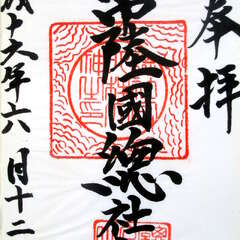 奉拝
常陸國總社
成十六年六月十二